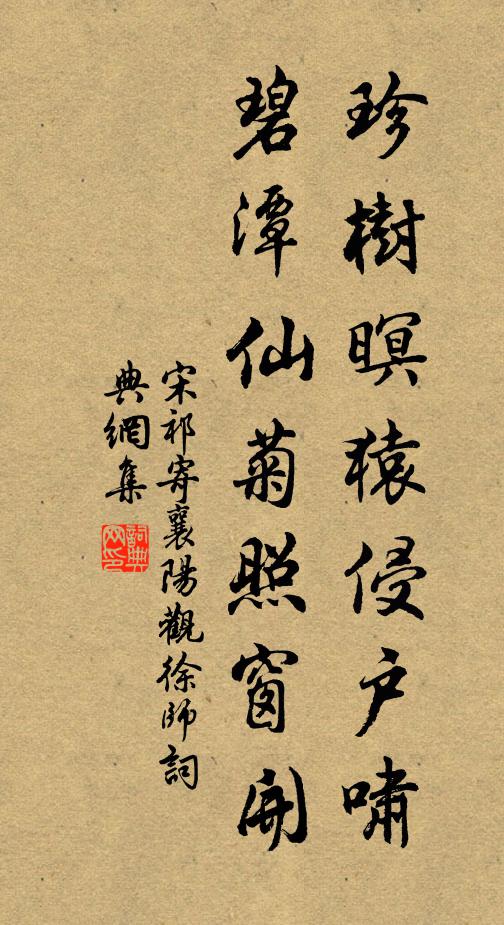 珍樹暝猿侵户嘯
碧潭仙菊照窗開
宋祁寄襄陽觀徐師詞
典網集
詞典網印